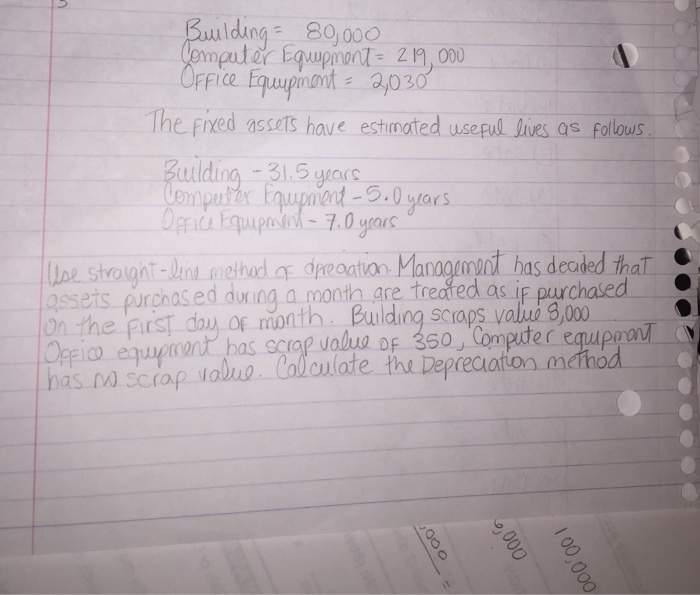 Building = 80,000
Computer Equipment = 219,000
Office Equipment = 2,030
The fixed assets have estimated useful lives as follows.
Building - 31.5 years
Computer Equipment - 5.0 years
Office Equipment - 7.0 years
Use straight-line method of dpreciation. Management has decided that
assets purchased during a month are treated as if purchased
on the first day of month. Building scraps value 8,000
Office equipment has scrap value of 350, Computer equipment
has no scrap value. Calculate the Depreciation method
,000 =
6,000
100,000